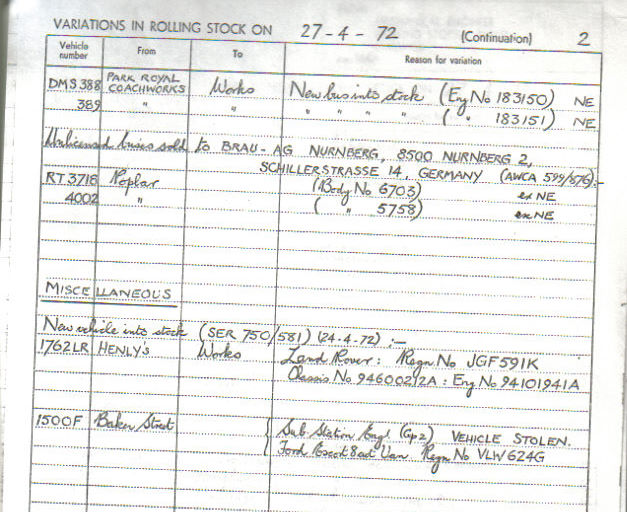 VARIATIONS IN ROLLING STOCK ON 27-4-72 (Continuation) 2
Vehicle number From To Reason for variation
DMS 388 PARK ROYAL COACHWORKS Works New bus into stock (Eng No 183150) NE
389 " " " " " " ( " 183151) NE
Unlicensed buses sold to BRAU-AG NURNBERG, 8500 NURNBERG 2,
SCHILLERSTRASSE 14, GERMANY (AWCA 599/576):-
RT 3716 Poplar (Body No 6703) ex NE
4002 " ( " 5758) ex NE
MISCELLANEOUS
New vehicle into stock (SER 750/581) (24.4.72) :-
1762LR HENLY'S Works Land Rover: Regn No JGF591K
Chassis No 94600212A : Eng No 94101941A
1500F Baker Street Sub Station Engl (Gp2) VEHICLE STOLEN.
Ford Escort 8cwt Van Regn No VLW624G